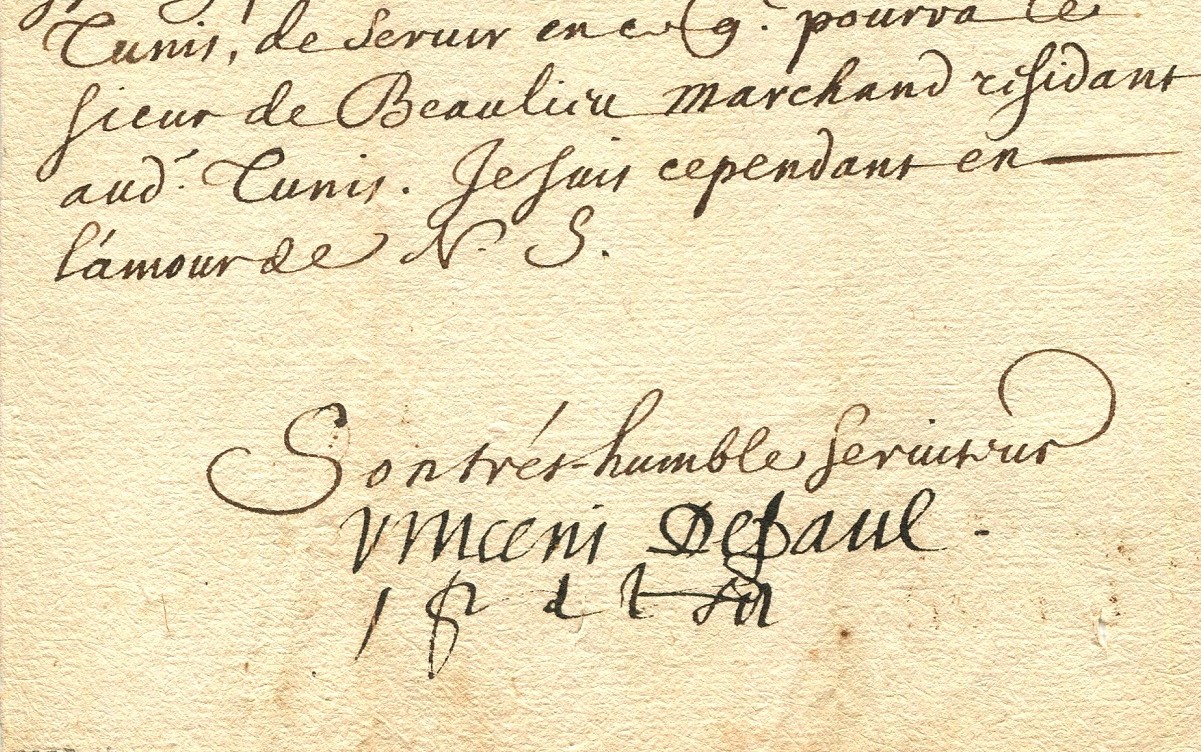 Tunis, de Seruir en ce q. pourra le
sieur de Beaulieu Marchand residant
aud. Tunis. Je suis cependant en
l'amour de N. S.
Son trés-humble seruiteur
Vincent Depaul